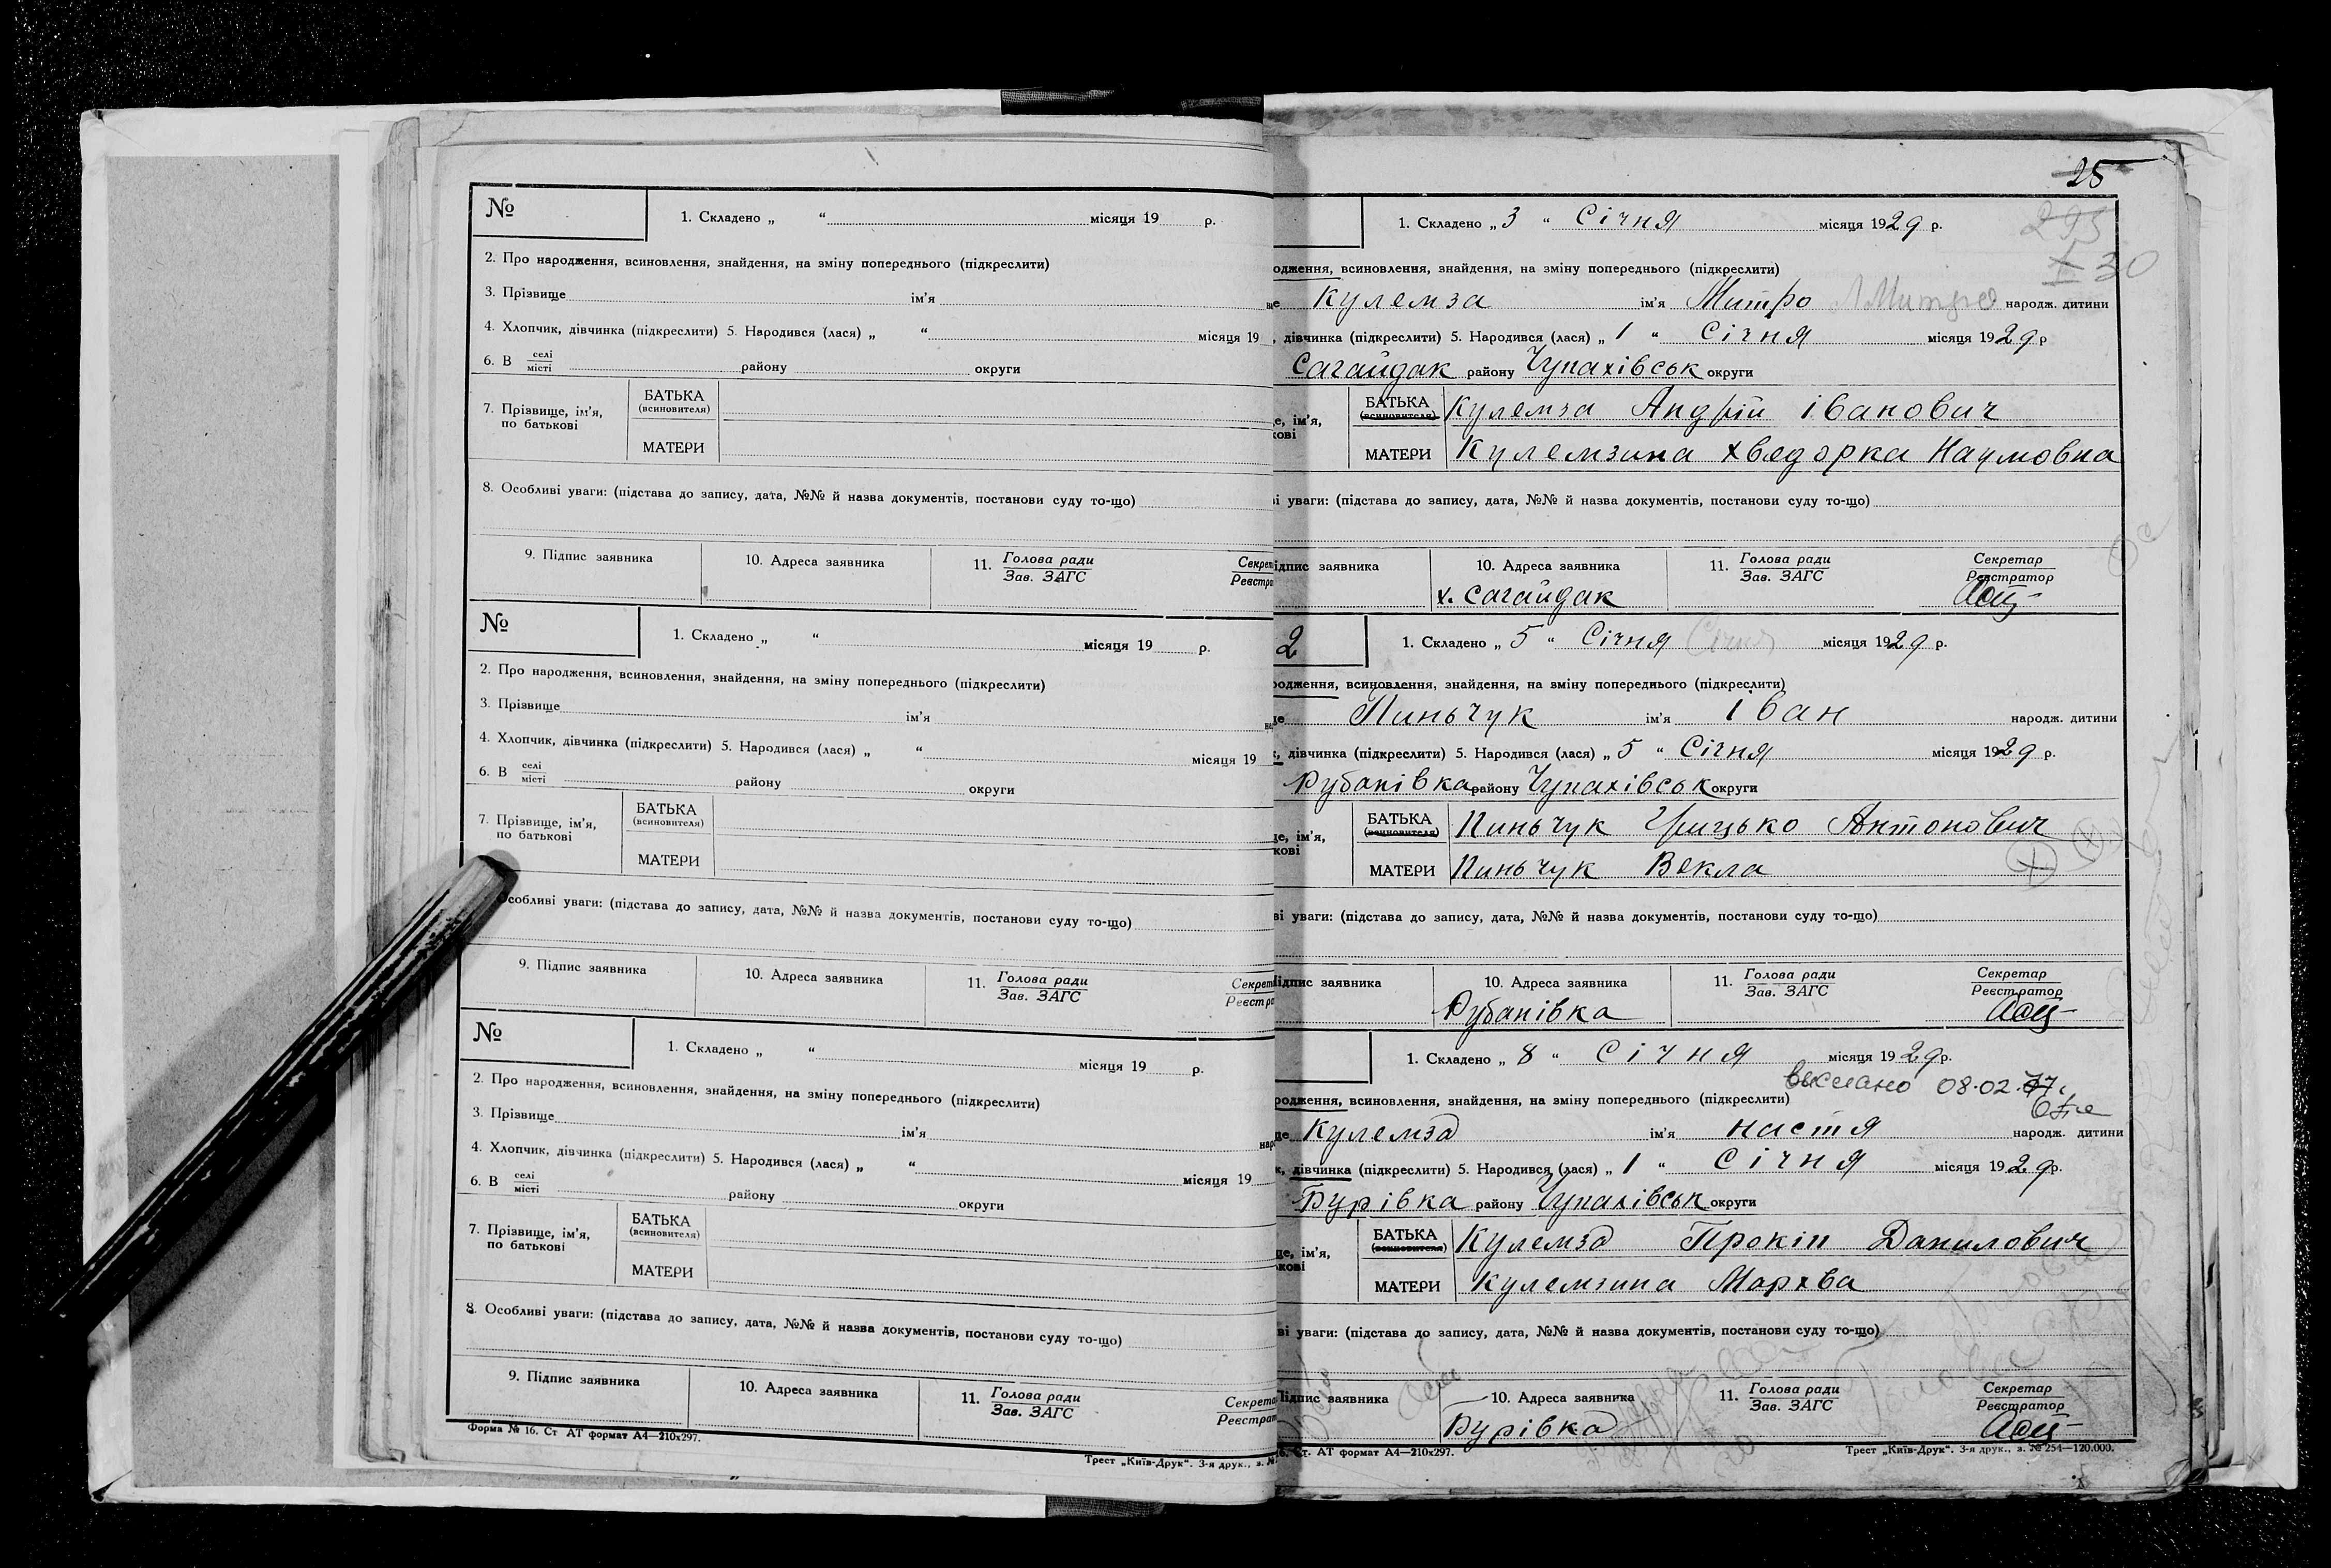 №
1. Складено „ “ місяця 19 р.
2. Про народження, всиновлення, знайдення, на зміну попереднього (підкреслити)
3. Прізвище ім'я
4. Хлопчик, дівчинка (підкреслити) 5. Народився (лася) „ “ місяця 19
6. В селі місті району округи
7. Прізвище, ім'я, по батькові
БАТЬКА (всиновителя)
МАТЕРИ
8. Особливі уваги: (підстава до запису, дата, №№ й назва документів, постанови суду то-що)
9. Підпис заявника 10. Адреса заявника 11. Голова ради Секрет
Зав. ЗАГС Реєстра
№
1. Складено „ “ місяця 19 р.
2. Про народження, всиновлення, знайдення, на зміну попереднього (підкреслити)
3. Прізвище ім'я на
4. Хлопчик, дівчинка (підкреслити) 5. Народився (лася) „ “ місяця 19
6. В селі місті району округи
7. Прізвище, ім'я, по батькові
БАТЬКА (всиновителя)
МАТЕРИ
Особливі уваги: (підстава до запису, дата, №№ й назва документів, постанови суду то-що)
9. Підпис заявника 10. Адреса заявника 11. Голова ради Секрет
Зав. ЗАГС Реєстра
№
1. Складено „ “ місяця 19 р.
2. Про народження, всиновлення, знайдення, на зміну попереднього (підкреслити)
3. Прізвище ім'я нар
4. Хлопчик, дівчинка (підкреслити) 5. Народився (лася) „ “ місяця 19
6. В селі місті району округи
7. Прізвище, ім'я, по батькові
БАТЬКА (всиновителя)
МАТЕРИ
8. Особливі уваги: (підстава до запису, дата, №№ й назва документів, постанови суду то-що)
9. Підпис заявника 10. Адреса заявника 11. Голова ради Секрета
Зав. ЗАГС Реєстрат
Форма № 16. Ст АТ формат А4—210х297.
Трест „Київ-Друк“. 3-я друк., з. №
25
295
30
1. Складено „ 3 “ Січня місяця 1929 р.
одження, всиновлення, знайдення, на зміну попереднього (підкреслити)
ще Кулемза ім'я Митро Митро народж. дитини
, дівчинка (підкреслити) 5. Народився (лася) „ 1 “ Січня місяця 1929 р
Сагайдак району Чупахівськ округи
е, ім'я,
кові
БАТЬКА (всиновителя) Кулемза Андрій іванович
МАТЕРИ Кулемзина Хведорка Наумовна
і уваги: (підстава до запису, дата, №№ й назва документів, постанови суду то-що)
ідпис заявника 10. Адреса заявника 11. Голова ради Секретар
Зав. ЗАГС Реєстратор
х. Сагайдак
2
1. Складено „ 5 “ Січня Січня місяця 1929 р.
родження, всиновлення, знайдення, на зміну попереднього (підкреслити)
ще Пиньчук ім'я іван народж. дитини
к, дівчинка (підкреслити) 5. Народився (лася) „ 5 “ Січня місяця 1929 р.
Рубанівка району Чупахівськ округи
ще, ім'я,
кові
БАТЬКА (всиновителя) Пиньчук Грицько Антонович
МАТЕРИ Пиньчук Векла
ві уваги: (підстава до запису, дата, №№ й назва документів, постанови суду то-що)
Підпис заявника 10. Адреса заявника 11. Голова ради Секретар
Зав. ЗАГС Реєстратор
Рубанівка
1. Складено „ 8 “ Січня місяця 1929 р.
выслано 08.02.77г.
родження, всиновлення, знайдення, на зміну попереднього (підкреслити)
ще Кулемза ім'я Настя народж. дитини
к, дівчинка (підкреслити) 5. Народився (лася) „ 1 “ Січня місяця 1929 р.
Бурівка району Чупахівськ округи
ще, ім'я,
кові
БАТЬКА (всиновителя) Кулемза Прокіп Данилович
МАТЕРИ Кулемзина Мархва
ві уваги: (підстава до запису, дата, №№ й назва документів, постанови суду то-що)
Підпис заявника 10. Адреса заявника 11. Голова ради Секретар
Зав. ЗАГС Реєстратор
Бурівка
6. Ст. АТ формат А4—210х297.
Трест „Київ-Друк“. 3-я друк., з. № 254—120.000.